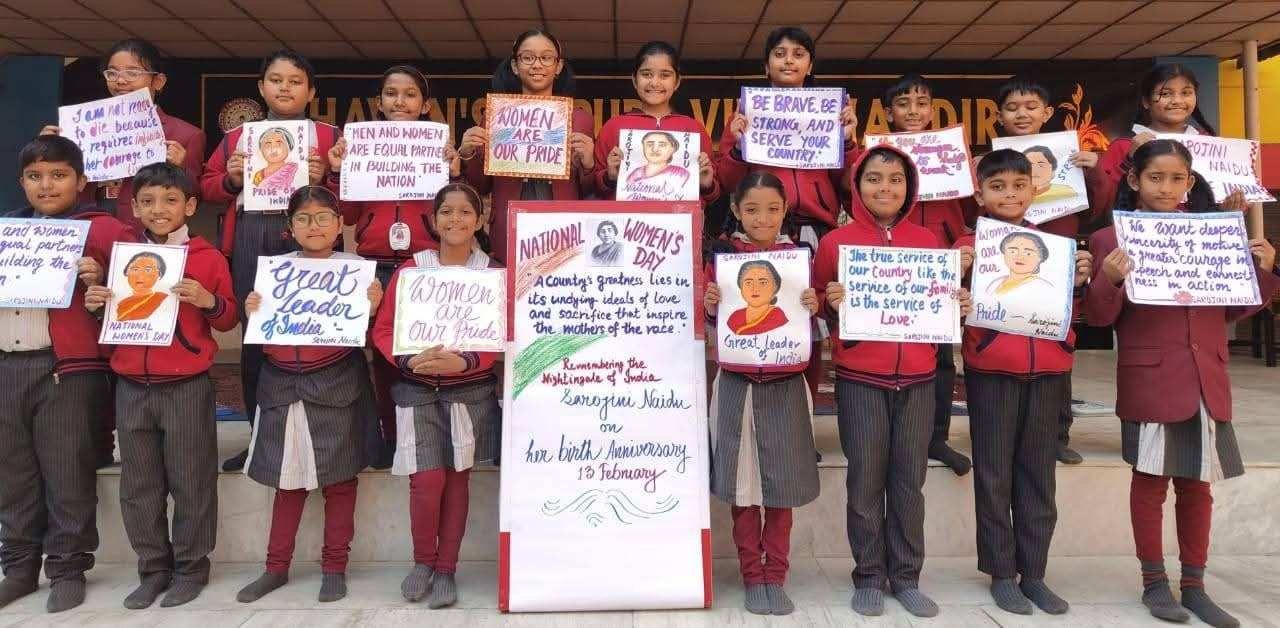 HAVAN'S
I am not ready
to die because
it requires infinitely
higher courage to
SAROJINI
NAIDU
PRIDE OF
INDIA
MEN AND WOMEN
ARE EQUAL PARTNERS
IN BUILDING THE
NATION
SAROJINI NAIDU
WOMEN
ARE
OUR PRIDE
SAROJINI
NAIDU
National
BE BRAVE, BE
STRONG, AND
SERVE YOUR
COUNTRY.
SAROJINI NAIDU
you are
SAROJINI
NAIDU
INDIA
and women
equal partners
building the
SAROJINI NAIDU
NATIONAL
WOMEN'S DAY
"Great
leader
of India"
SAROJINI NAIDU
Women
are
our Pride
SAROJINI NAIDU
NATIONAL WOMEN'S
DAY
"A Country's greatness lies in
its undying ideals of love
and sacrifice that inspire
the mothers of the race."
Remembering the
Nightingale of India
Sarojini Naidu
on
her birth Anniversary
13 February
SAROJINI NAIDU
Great leader
of India
The true service of
our Country like the
service of our family
is the service of
Love.
SAROJINI NAIDU
Women
are our
Pride
Sarojini
Naidu
We want deeper
sincerity of motive
a greater courage in
speech and earnest-
ness in action
SAROJINI NAIDU